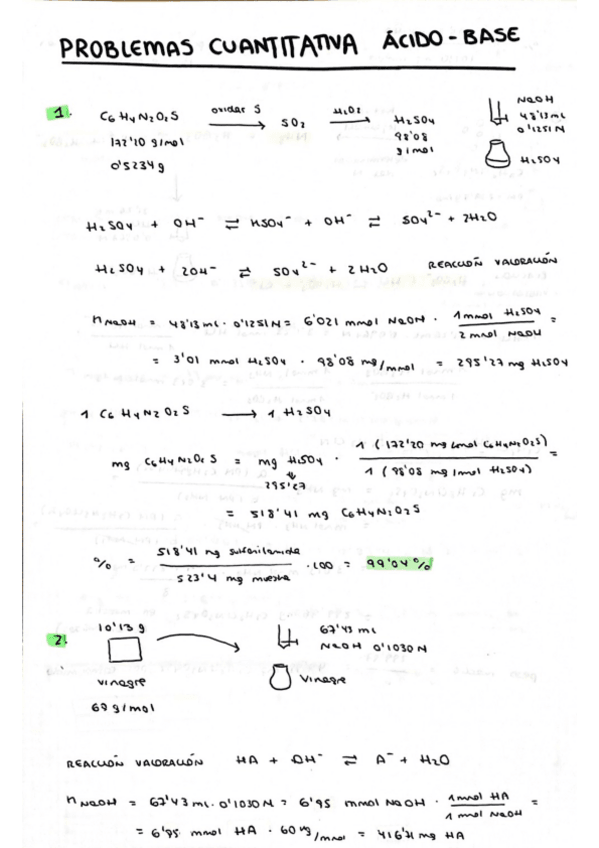 PROBLEMAS CUANTITATIVA ÁCIDO-BASE
1. C6H4N2O2S oxidar S → SO2 H2O2 → H2SO4
172'20 g/mol 98'08 g/mol
0'5234 g
NaOH
48'13 mL
0'1251 N
H2SO4
H2SO4 + OH⁻ ⇌ HSO4⁻ + OH⁻ ⇌ SO4²⁻ + 2H2O
H2SO4 + 2OH⁻ ⇌ SO4²⁻ + 2H2O REACCIÓN VALORACIÓN
nNaOH = 48'13 mL · 0'1251 N = 6'021 mmol NaOH · 1 mmol H2SO4 / 2 mmol NaOH =
= 3'01 mmol H2SO4 · 98'08 mg/mmol = 295'27 mg H2SO4
1 C6H4N2O2S → 1 H2SO4
mg C6H4N2O2S = mg H2SO4 · 1 (172'20 mg/mmol C6H4N2O2S) / 1 (98'08 mg/mmol H2SO4) =
295'27
= 518'41 mg C6H4N2O2S
% = 518'41 mg sulfanilamida / 523'4 mg muestra · 100 = 99'04 %
2. 10'13 g
vinagre
60 g/mol
67'43 mL
NaOH 0'1030 N
Vinagre
REACCIÓN VALORACIÓN HA + OH⁻ ⇌ A⁻ + H2O
nNaOH = 67'43 mL · 0'1030 N = 6'95 mmol NaOH · 1 mmol HA / 1 mmol NaOH =
= 6'95 mmol HA · 60 mg/mmol = 416'71 mg HA